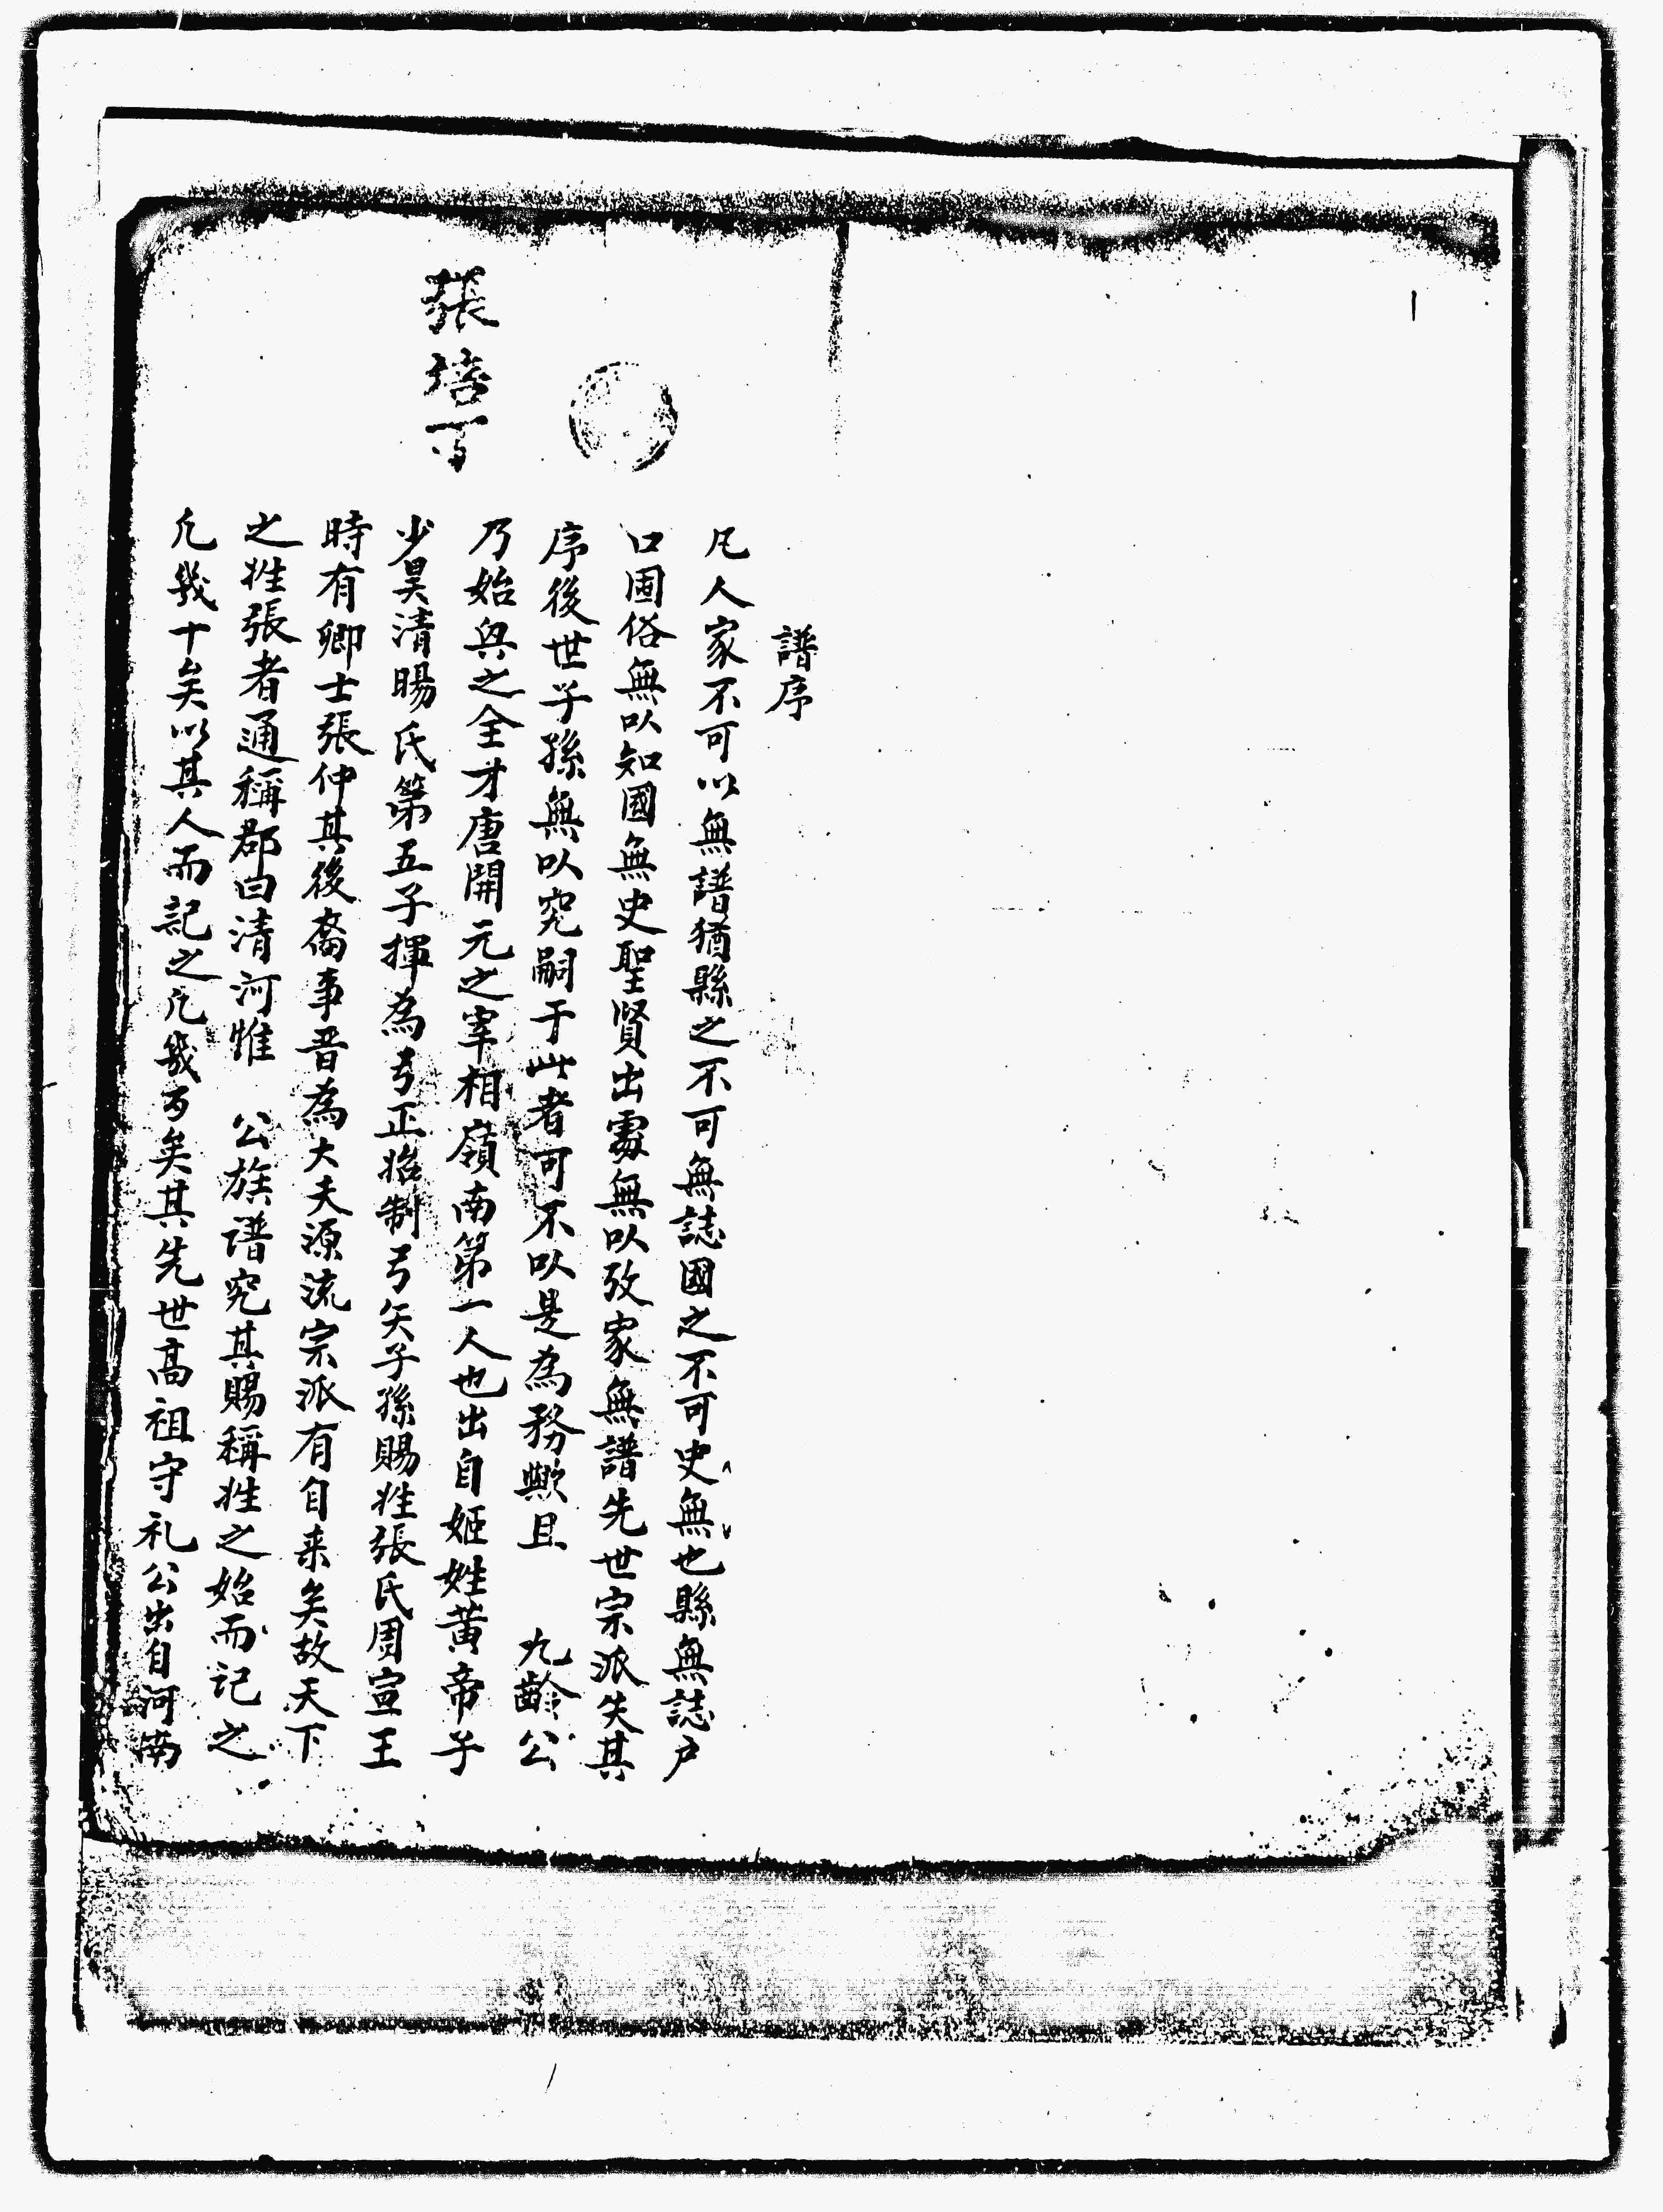 譜序
凡人家不可以無譜猶縣之不可無誌國之不可史無也縣無誌户
口圄俗無以知國無史聖賢出處無以攷家無譜先世宗派失其
序後世子孫無以究嗣于此者可不以是為務歟且 九齡公
乃始興之全才唐開元之宰相嶺南第一人也出自姬姓黄帝子
少昊清暘氏第五子揮為弓正始制弓矢子孫賜姓張氏周宣王
時有卿士張仲其後裔事晋為大夫源流宗派有自来矣故天下
之姓張者通稱郡曰清河惟 公族譜究其賜稱姓之始而记之
凢幾十矣以其人而記之凢幾万矣其先世高祖守礼公出自河南
張培